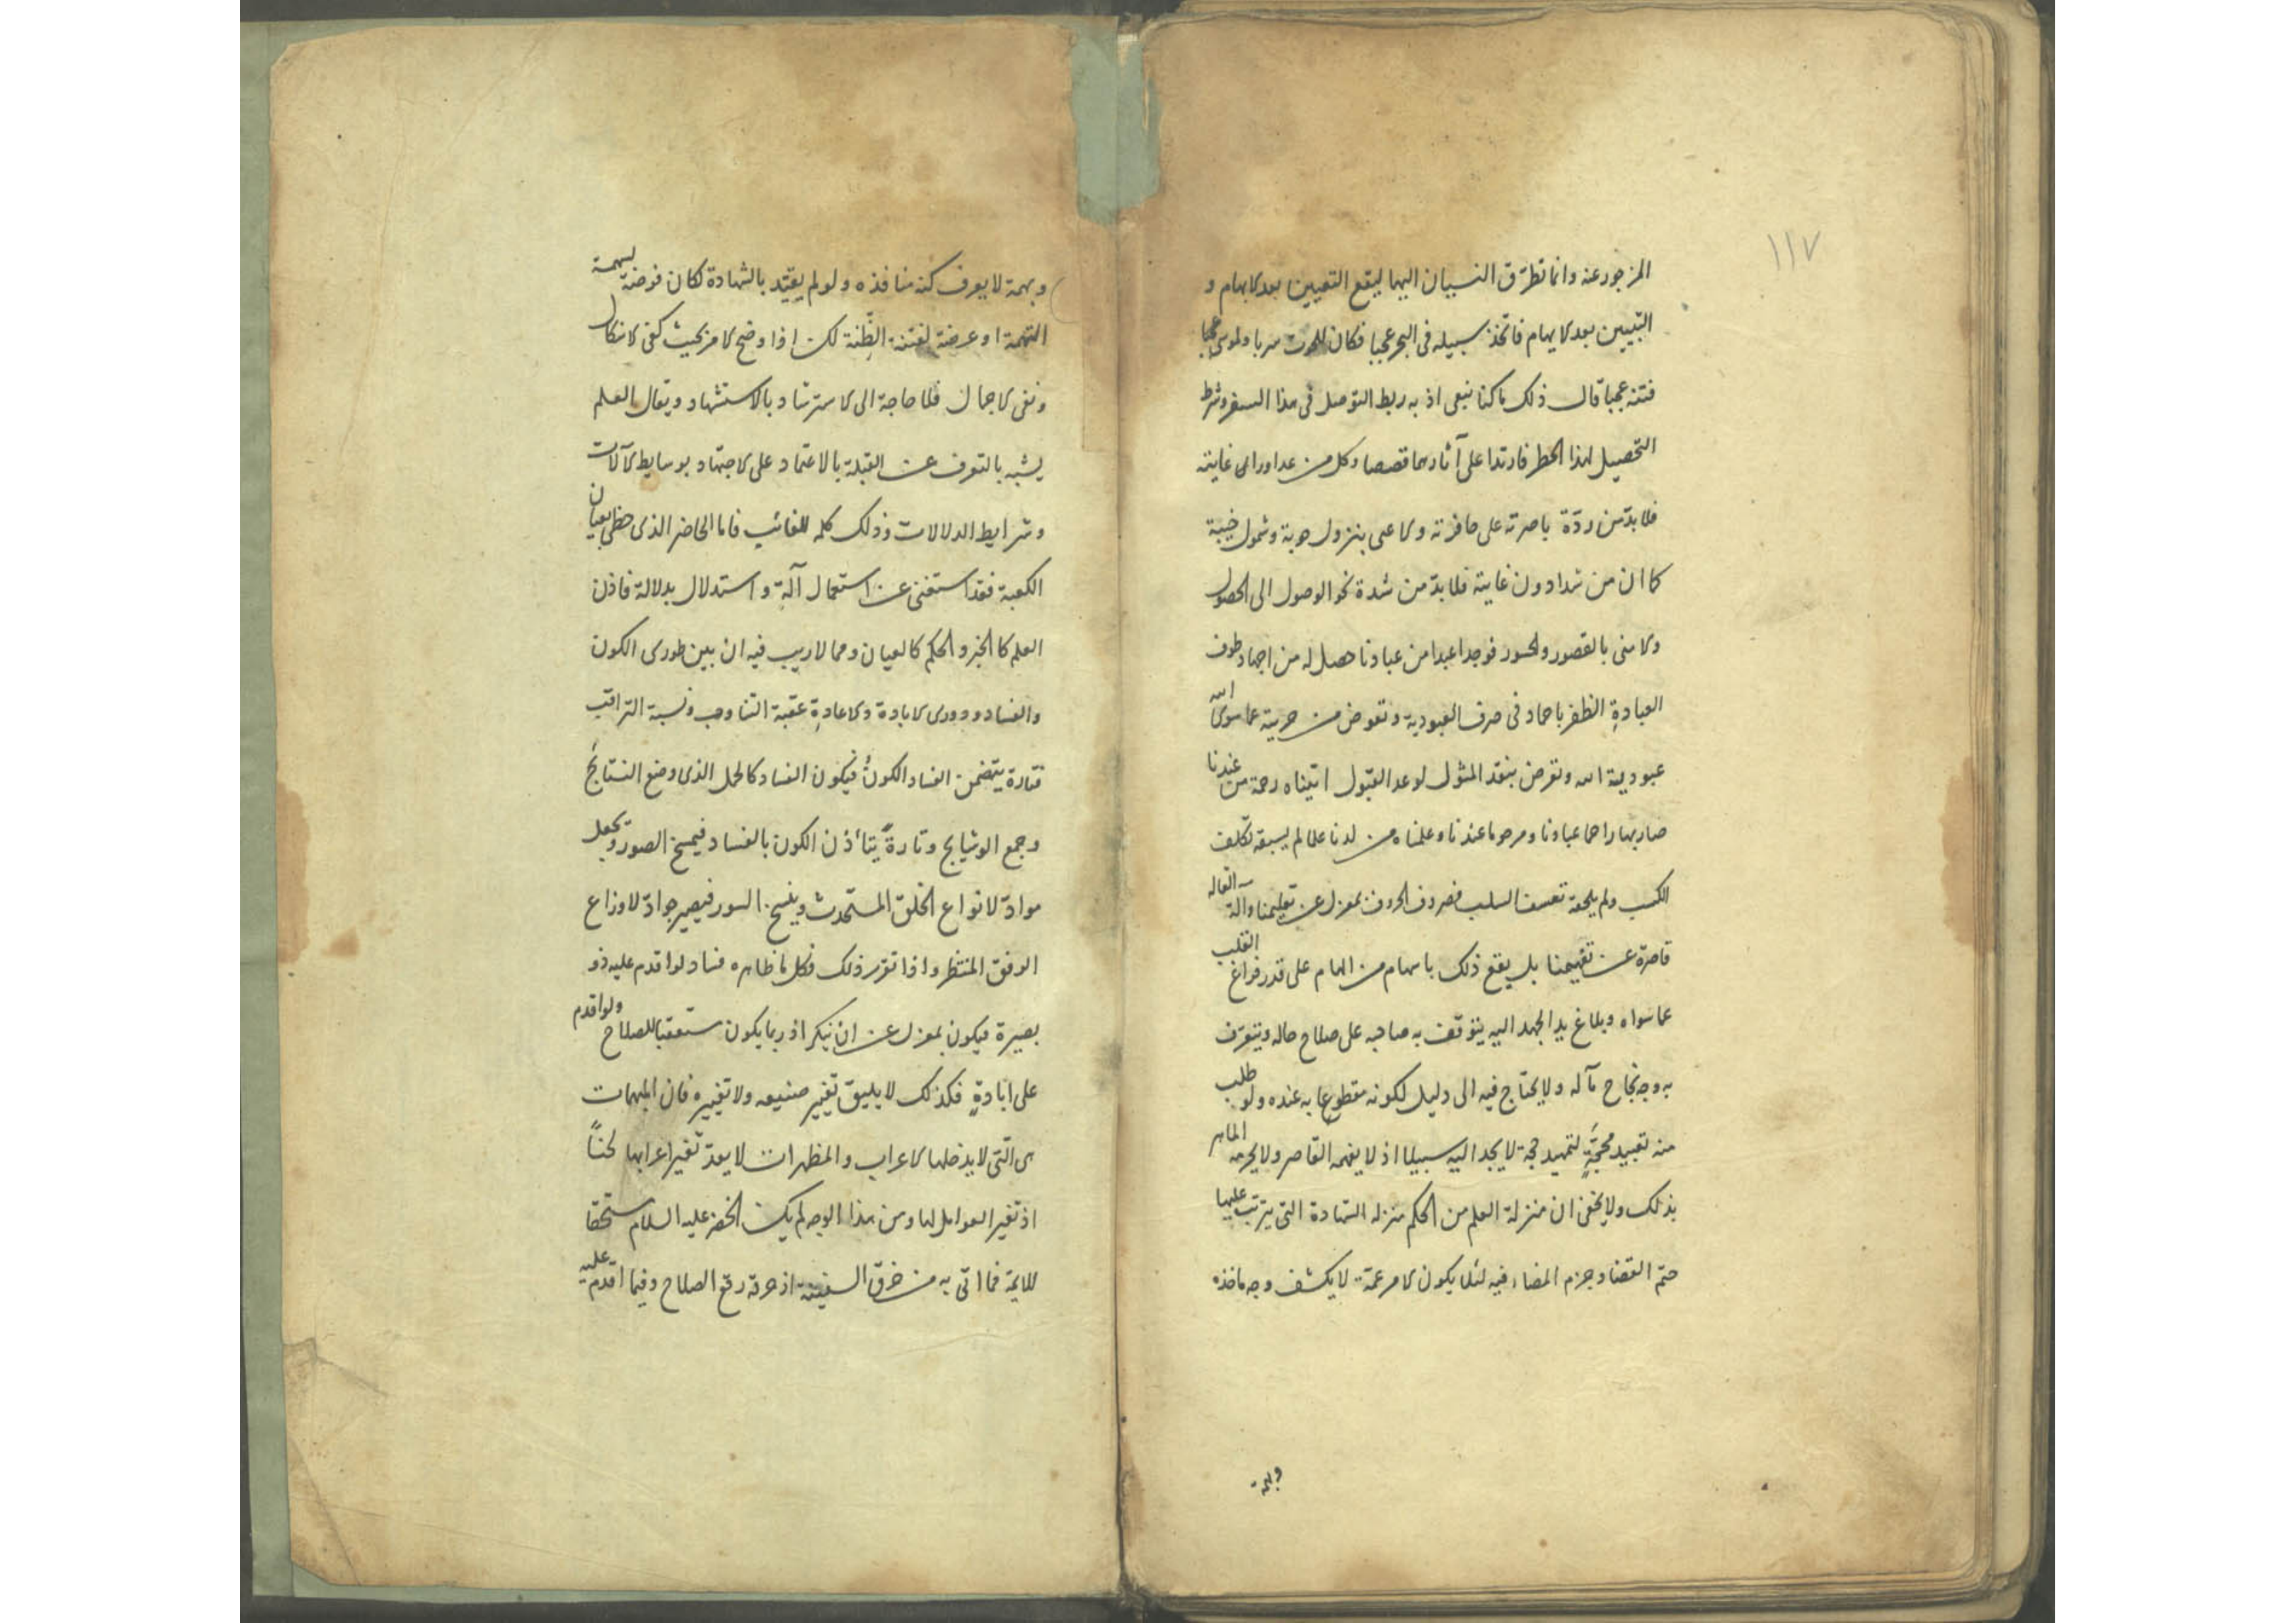 ١١٧
المزجور عنه وانما تطرّق النسيان اليهما ليقع التعيين بعد الابهام و
التبيين بعد الايهام فاتخذ سبيله فى البحر عجبا فكان للحوت سربا ولموسى عجبا
فتنه عجبا قال ذلك ما كنا نبغى اذ به ربط التوصل فى هذا السفر وشرط
التحصيل لهذا الخطر فارتدا على آثارهما قصصا وكل من عدا وراى غايته
فلا بدّ من ردّة باصرته على حافرته والاعمى بنزول حوبة وشمول خيبة
كما ان من شدا دون غايته فلا بدّ من شدة نحو الوصول الى الحصول
والا منى بالقصور والحسور فوجدا عبدا من عبادنا حصل له من اجهاد طوف
العبادةِ الظفر باحماد فى صرف العبودية وتعوض من حرية عما سوى الله
عبودية الله وتعرض بنقد المثول لوعد القبول اتيناه رحمة من عندنا
صار بها راحما عبادنا ومرحوما عندنا وعلمناه من لدنا علما لم يسبقه تكلف
الكسب ولم يلحقه تعسف السلب فصروف الحروف بمعزل عن تعليمنا وآلة القاله
قاصرة عن تفهيمنا بل يقع ذلك باسهام من الهام على قدر فراغ القلب
عما سواه وبلاغ يد الجهد اليه يتوقف به صاحبه على صلاح حاله ويتعرّف
به وجه نجاح مآله ولا يحتاج فيه الى دليل لكونه مقطوعا به عنده ولو طلب
منه تعبيد محجّةٍ لتمهيد حجة لا يجد اليه سبيلا اذ لا يفهمه القاصر ولا يحرمه الماهر
بذلك ولا يخفى ان منزلة العلم من الحكم منزله الشهادة التى يترتب عليها
حتم القضا وجزم المضاء فيه لئلا يكون الامر غمّة لا يكشف وجه ماخذه
وبهمة
وبهمة لا يعرف كنه منافذه ولو لم يقيّد بالشهادة لكان فوضة لبهمة
التهمة او عرضة لفتنة الظِّنة لكن اذا وضح الامر بحيث كفى الاشكال
ونفى الاجمال فلا حاجة الى الاسترشاد بالاستشهاد ويقال العلم
يشبه بالتعرف عن القبلة بالاعتماد على الاجتهاد بوسايط الآلات
وشرايط الدلالات وذلك كله للغائب فاما الحاضر الذى حظى بعيان
الكعبة فقد استغنى عن استعمال آلةٍ واستدلال بدلالة فاذن
العلم كالخبر والحكم كالعيان ومما لا ريب فيه ان بين طورى الكون
والفساد ودورى الابادة والاعادةِ عقبة التناوب ونسبة التراقب
فتارة يتضمن الفساد الكونَ فيكون الفساد كالحمل الذى وضع النستايج
وجمع الوشايج وتارةً يتأذن الكون بالفساد فيمسخ الصور ويجعل
موادّ لانواع الخلق المستحدث وينسخ السور فيصير جوادّ لاوزاع
الوفق المنتظر واذا تقرر ذلك فكل ما ظاهره فساد لو اقدم عليه ذو
بصيرة فيكون بمعزل عن ان ينكر اذ ربما يكون مستعقبا للصلاح ولو اقدم
على ابادةٍ فكذلك لا يليق تغيير صنيعه ولا تغييره فان المبهمات
هى التى لا يدخلها الاعراب والمظهرات لا يعدّ تغير اعرابها لحناً
اذ تغير العوامل لها ومن هذا الوجه لم يكن الخضر عليه السلام مستحقا
للايمة فما اتى به من خرق السفينة اذ خرقه رقع الصلاح وفيما اقدم عليه